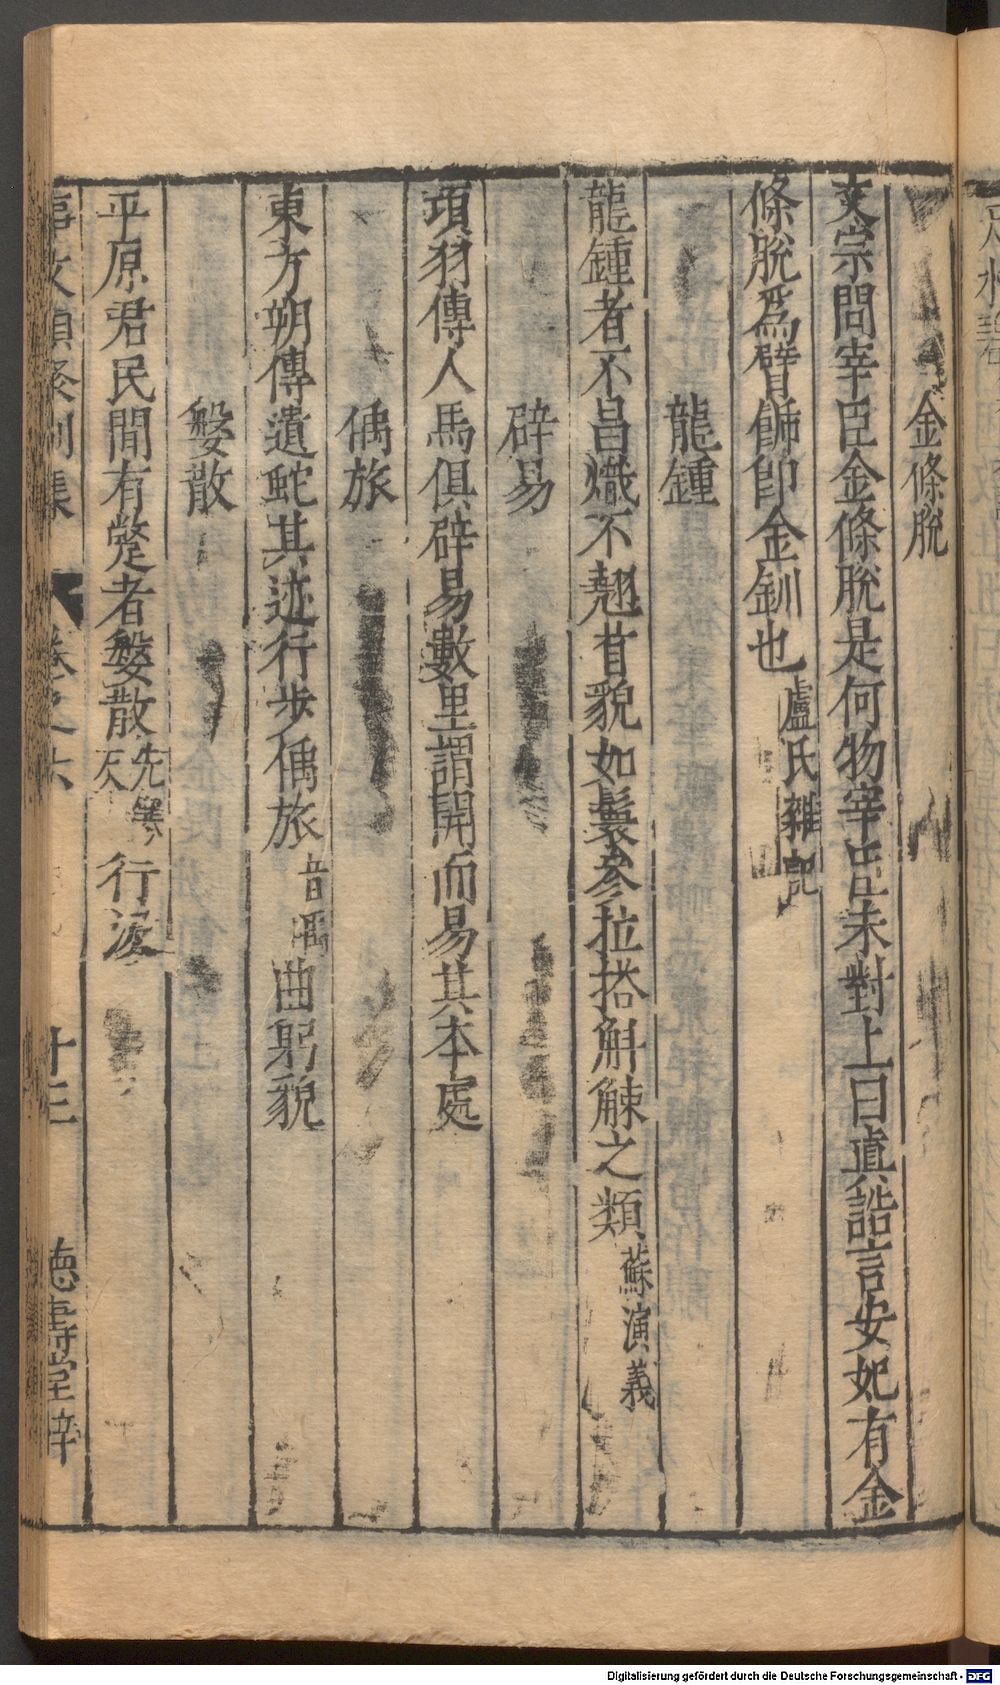 金條脫
文宗問宰臣金條脫是何物宰臣未對上曰真誥言安妃有金
條脫爲臂飾即金釧也盧氏雜記
龍鍾
龍鍾者不昌熾不翹首貌如鬖參拉搭斛觫之類蘇演義
辟易
項羽傳人馬俱辟易數里謂開而易其本處
偊旅
東方朔傳遺蛇其迹行步偊旅音禹曲躬貌
槃散
平原君民間有躄者槃散先寒反行汲
事文類聚別集 卷之六 十三 德壽堂梓
Digitalisierung gefördert durch die Deutsche Forschungsgemeinschaft - DFG